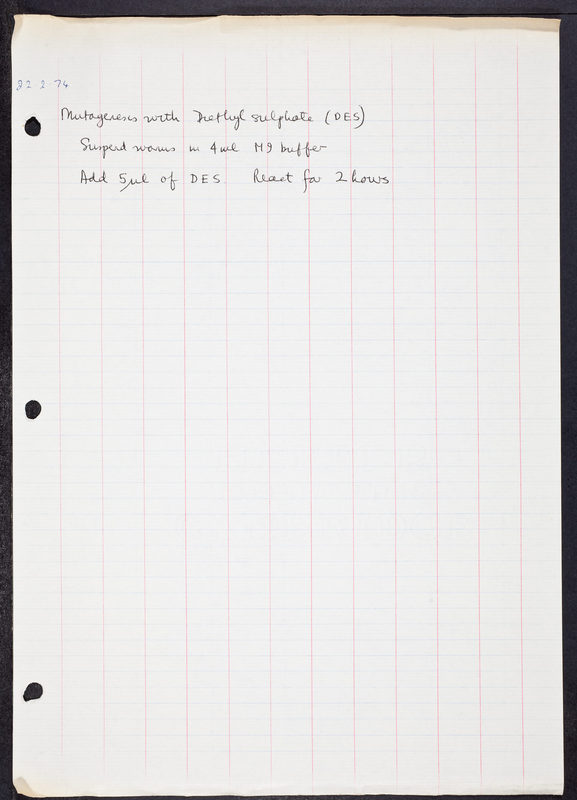 22 2 74
Mutagenesis with Diethyl sulphate (DES)
Suspend worms in 4ml M9 buffer
Add 5µl of DES. React for 2 hours